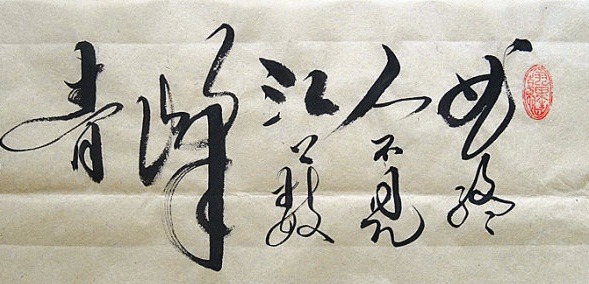 曲終
人不見
江上數
峰
青